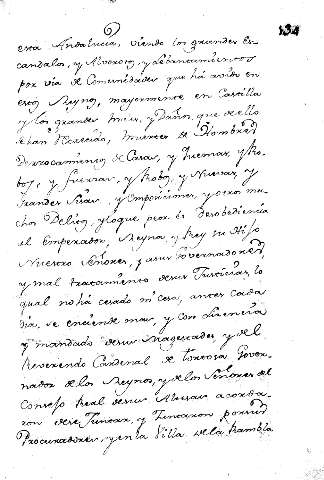 134
esta Andalucia, viendo los grandes es-
candalos, y Alvorotos y Lebantamientos
por via de Comunidades que há avido en
estos Reynos, mayormente en Castilla
y los grandes males, y Daños, que de ello
se han Recrecido, muertes de Hombres
Derrocamientos de Casas, y Quemas, y Ro-
bos, y fuerzas, y Robos, y Nuevas, y
Grandes Sisas, y Ymposiciones, y otros mu-
chos Delitos, y lo que peor es Desobediencia
al Emperador, Reyna, y Rey su Hijo
Nuestros Señores, y a sus Governadores,
y mal tratamiento de sus Justicias, lo
qual no há cesado ni cesa, antes cada
dia, se enciende mas, y con Licencia
y mandado de sus Magestades, y del
Reverendo Cardenal de tortosa Gover-
nador de los Reynos, y de los Señores del
Consejo Real de sus Altezas acorda-
ron de se Juntar, y Juntaron por sus
Procuradores, y en la Villa de la Rambla